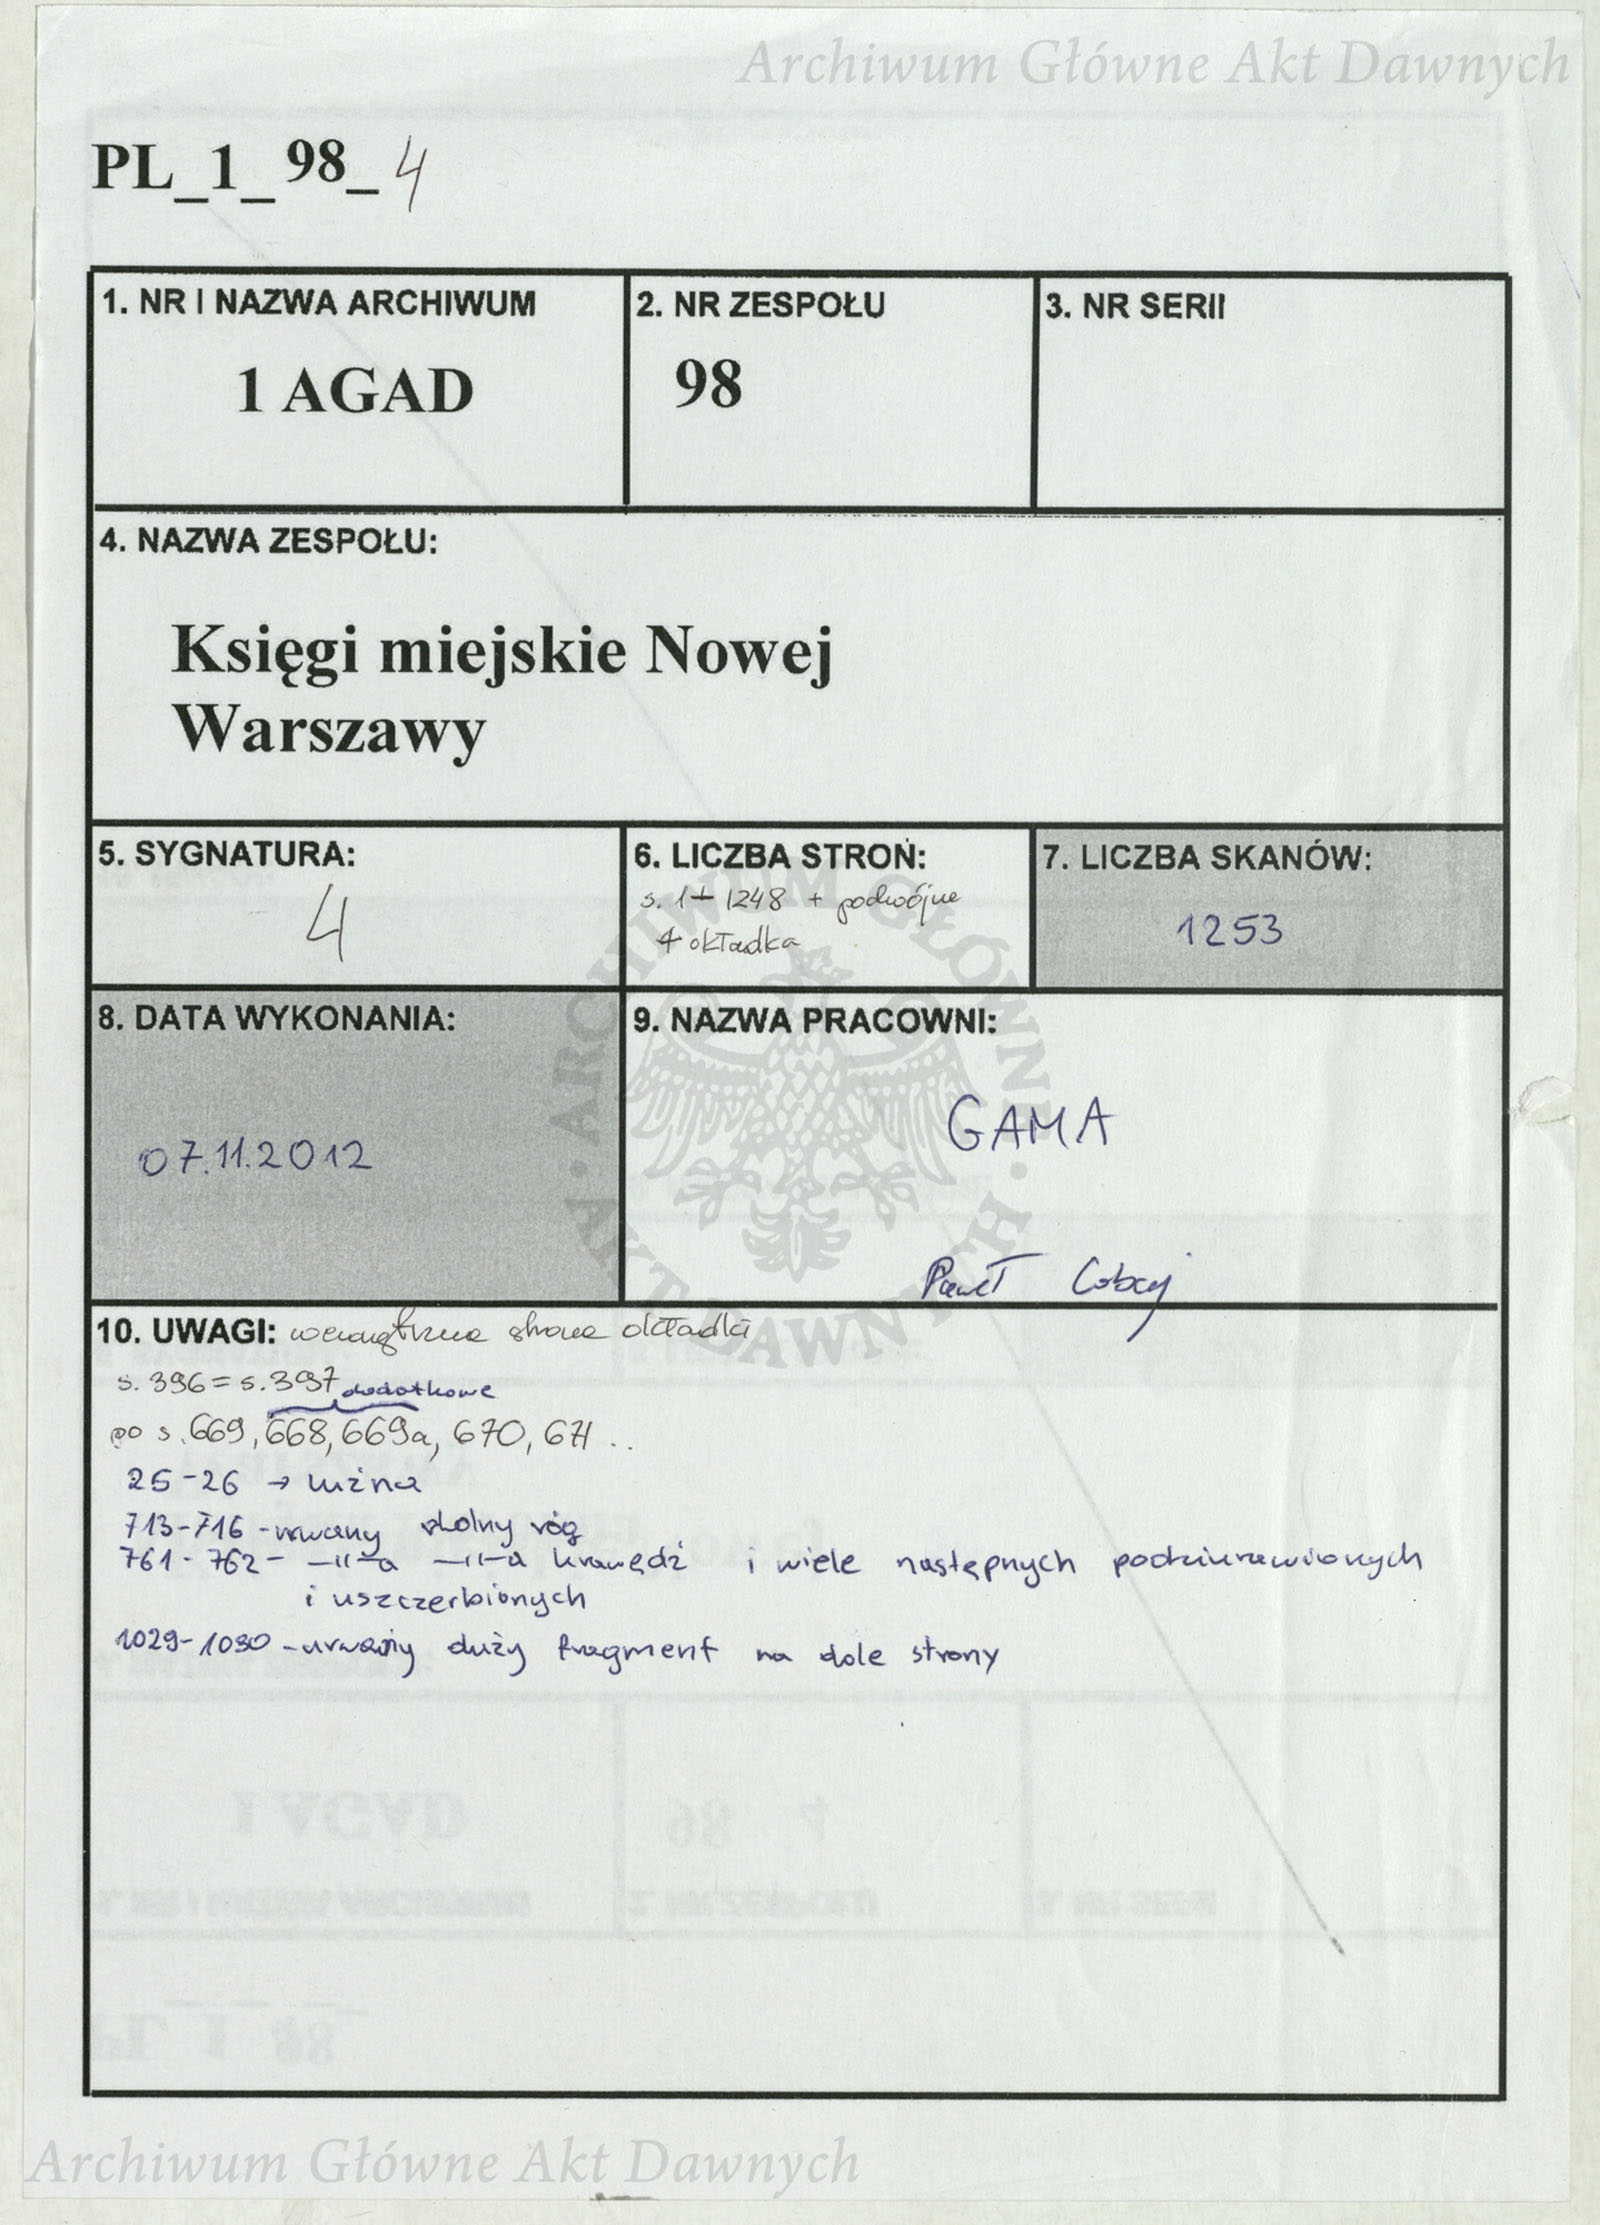 Archiwum Główne Akt Dawnych
PL_1_98_4
1. NR I NAZWA ARCHIWUM
1 AGAD
2. NR ZESPOŁU
98
3. NR SERII
4. NAZWA ZESPOŁU:
Księgi miejskie Nowej
Warszawy
5. SYGNATURA:
4
6. LICZBA STRON:
s. 1÷1248 + podwójne
+ okładka
7. LICZBA SKANÓW:
1253
8. DATA WYKONANIA:
07.11.2012
9. NAZWA PRACOWNI:
GAMA
Paweł
ARCHIWUM GŁÓWNE · AKT DAWNYCH ·
10. UWAGI: wewnętrzna strona okładki
s. 396 = s. 397 dodatkowe
po s. 669, 668, 669a, 670, 671 ..
25-26 → luźna
713-716 - urwany dolny róg
761-762- —||—a —||—a krawędź i wiele następnych podziurawionych
i uszczerbionych
1029-1030 - urwany duży fragment na dole strony
Archiwum Główne Akt Dawnych